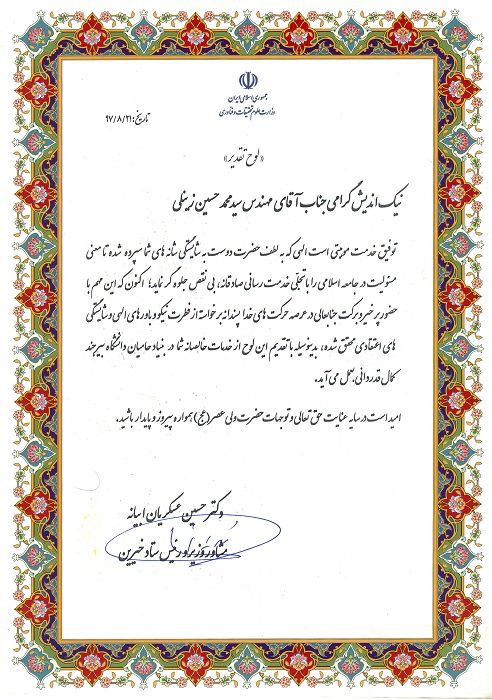 جمهوری اسلامی ایران
وزارت علوم تحقیقات و فناوری
تاریخ: ۹۷/۸/۲۱
«لوح تقدیر»
نیک اندیش گرامی جناب آقای مهندس سید محمد حسین زینلی
توفیق خدمت موهبتی است الهی که به لطف حضرت دوست به شایستگی شانه های شما سپرده شده تا معنی
مسئولیت در جامعه اسلامی را با تجلّی خدمت رسانی صادقانه، بی نقص جلوه گر نماید؛ اکنون که این مهم با
حضور پر خیر و برکت جنابعالی در عرصه حرکت های خدا پسندانه برخواسته از فطرت نیکو و باورهای الهی و شایستگی
های اعتقادی محقق شده، بدینوسیله با تقدیم این لوح از خدمات خالصانه شما در بنیاد حامیان دانشگاه بیرجند
کمال قدردانی بعمل می آید.
امید است در سایه عنایت حق تعالی و توجهات حضرت ولی عصر (عج) همواره پیروز و پایدار باشید.
دکتر حسین عسکریان ابیانه
مشاور وزیر و رئیس ستاد خیرین